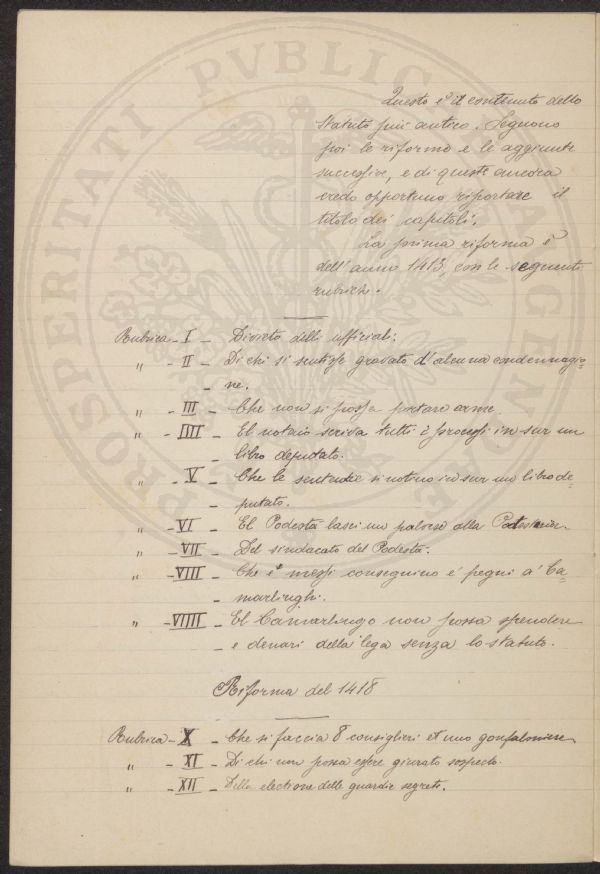 PROSPERITATI PVBLICAE AVGENDAE
Questo è il contenuto dello
statuto più antico. Seguono
poi le riforme e le aggiunte
successive, e di queste ancora
credo opportuno riportare il
titolo dei capitoli.
La prima riforma è
dell'anno 1413, con le seguenti
rubriche.
Rubrica - I - Divieto delli ufficiali.
" - II - Di chi si sentisse gravato d'alcuna condennagio=
- ne.
" - III - Che non si possa portare arme.
" - IIII - El notaio scriva tutti i processi in sur un
- libro deputato.
" - V - Che le sentendie si notino in sur un libro de=
- putato.
" - VI - El Podestà lasci un palvese alla Potesteria.
" - VII - Del sindacato del Podestà.
" - VIII - Che i messi conseguino e' pegni a' Ca=
- marlinghi.
" - VIIII - El Camarlingo non possa spendere
- e denari della lega senza lo statuto.
Riforma del 1418
Rubrica - X - Che si faccia 8 consiglieri et uno gonfaloniere
" - XI - Di chi non possa essere giurato sospecto.
" - XII - Della electione delle guardie segrete.